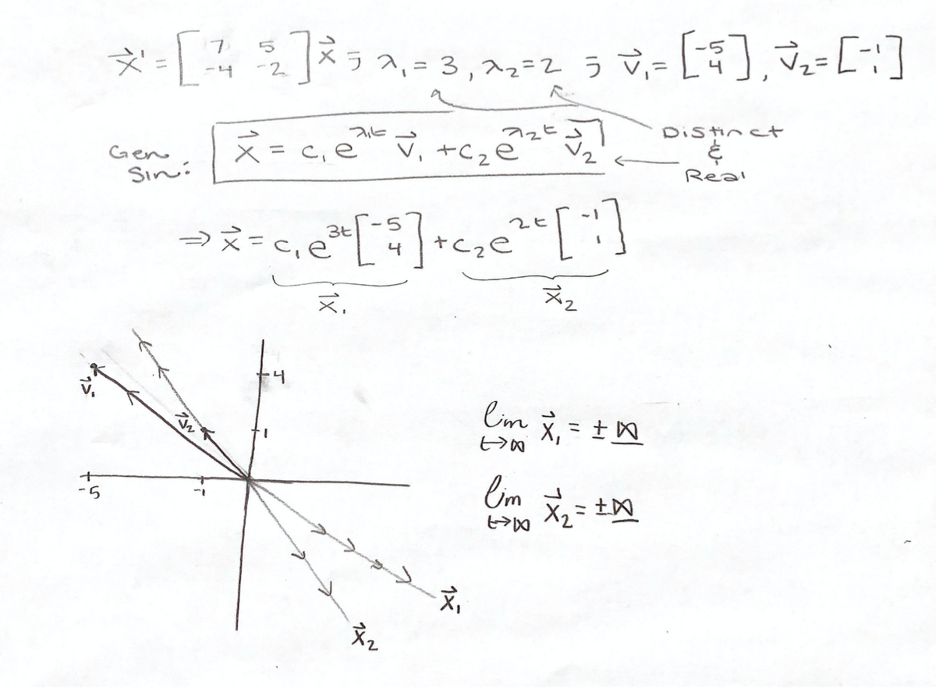 x⃗' = [7 5; -4 -2] x⃗ ; λ₁ = 3, λ₂ = 2 ; v⃗₁ = [-5; 4], v⃗₂ = [-1; 1]
Distinct
&
Real
Gen
Sln:
x⃗ = c₁e^{λ₁t} v⃗₁ + c₂e^{λ₂t} v⃗₂
⇒ x⃗ = c₁e^{3t} [-5; 4] + c₂e^{2t} [-1; 1]
x⃗₁
x⃗₂
4
v⃗₁
v⃗₂
1
-5
-1
x⃗₁
x⃗₂
lim t→∞ x⃗₁ = ±∞
lim t→∞ x⃗₂ = ±∞